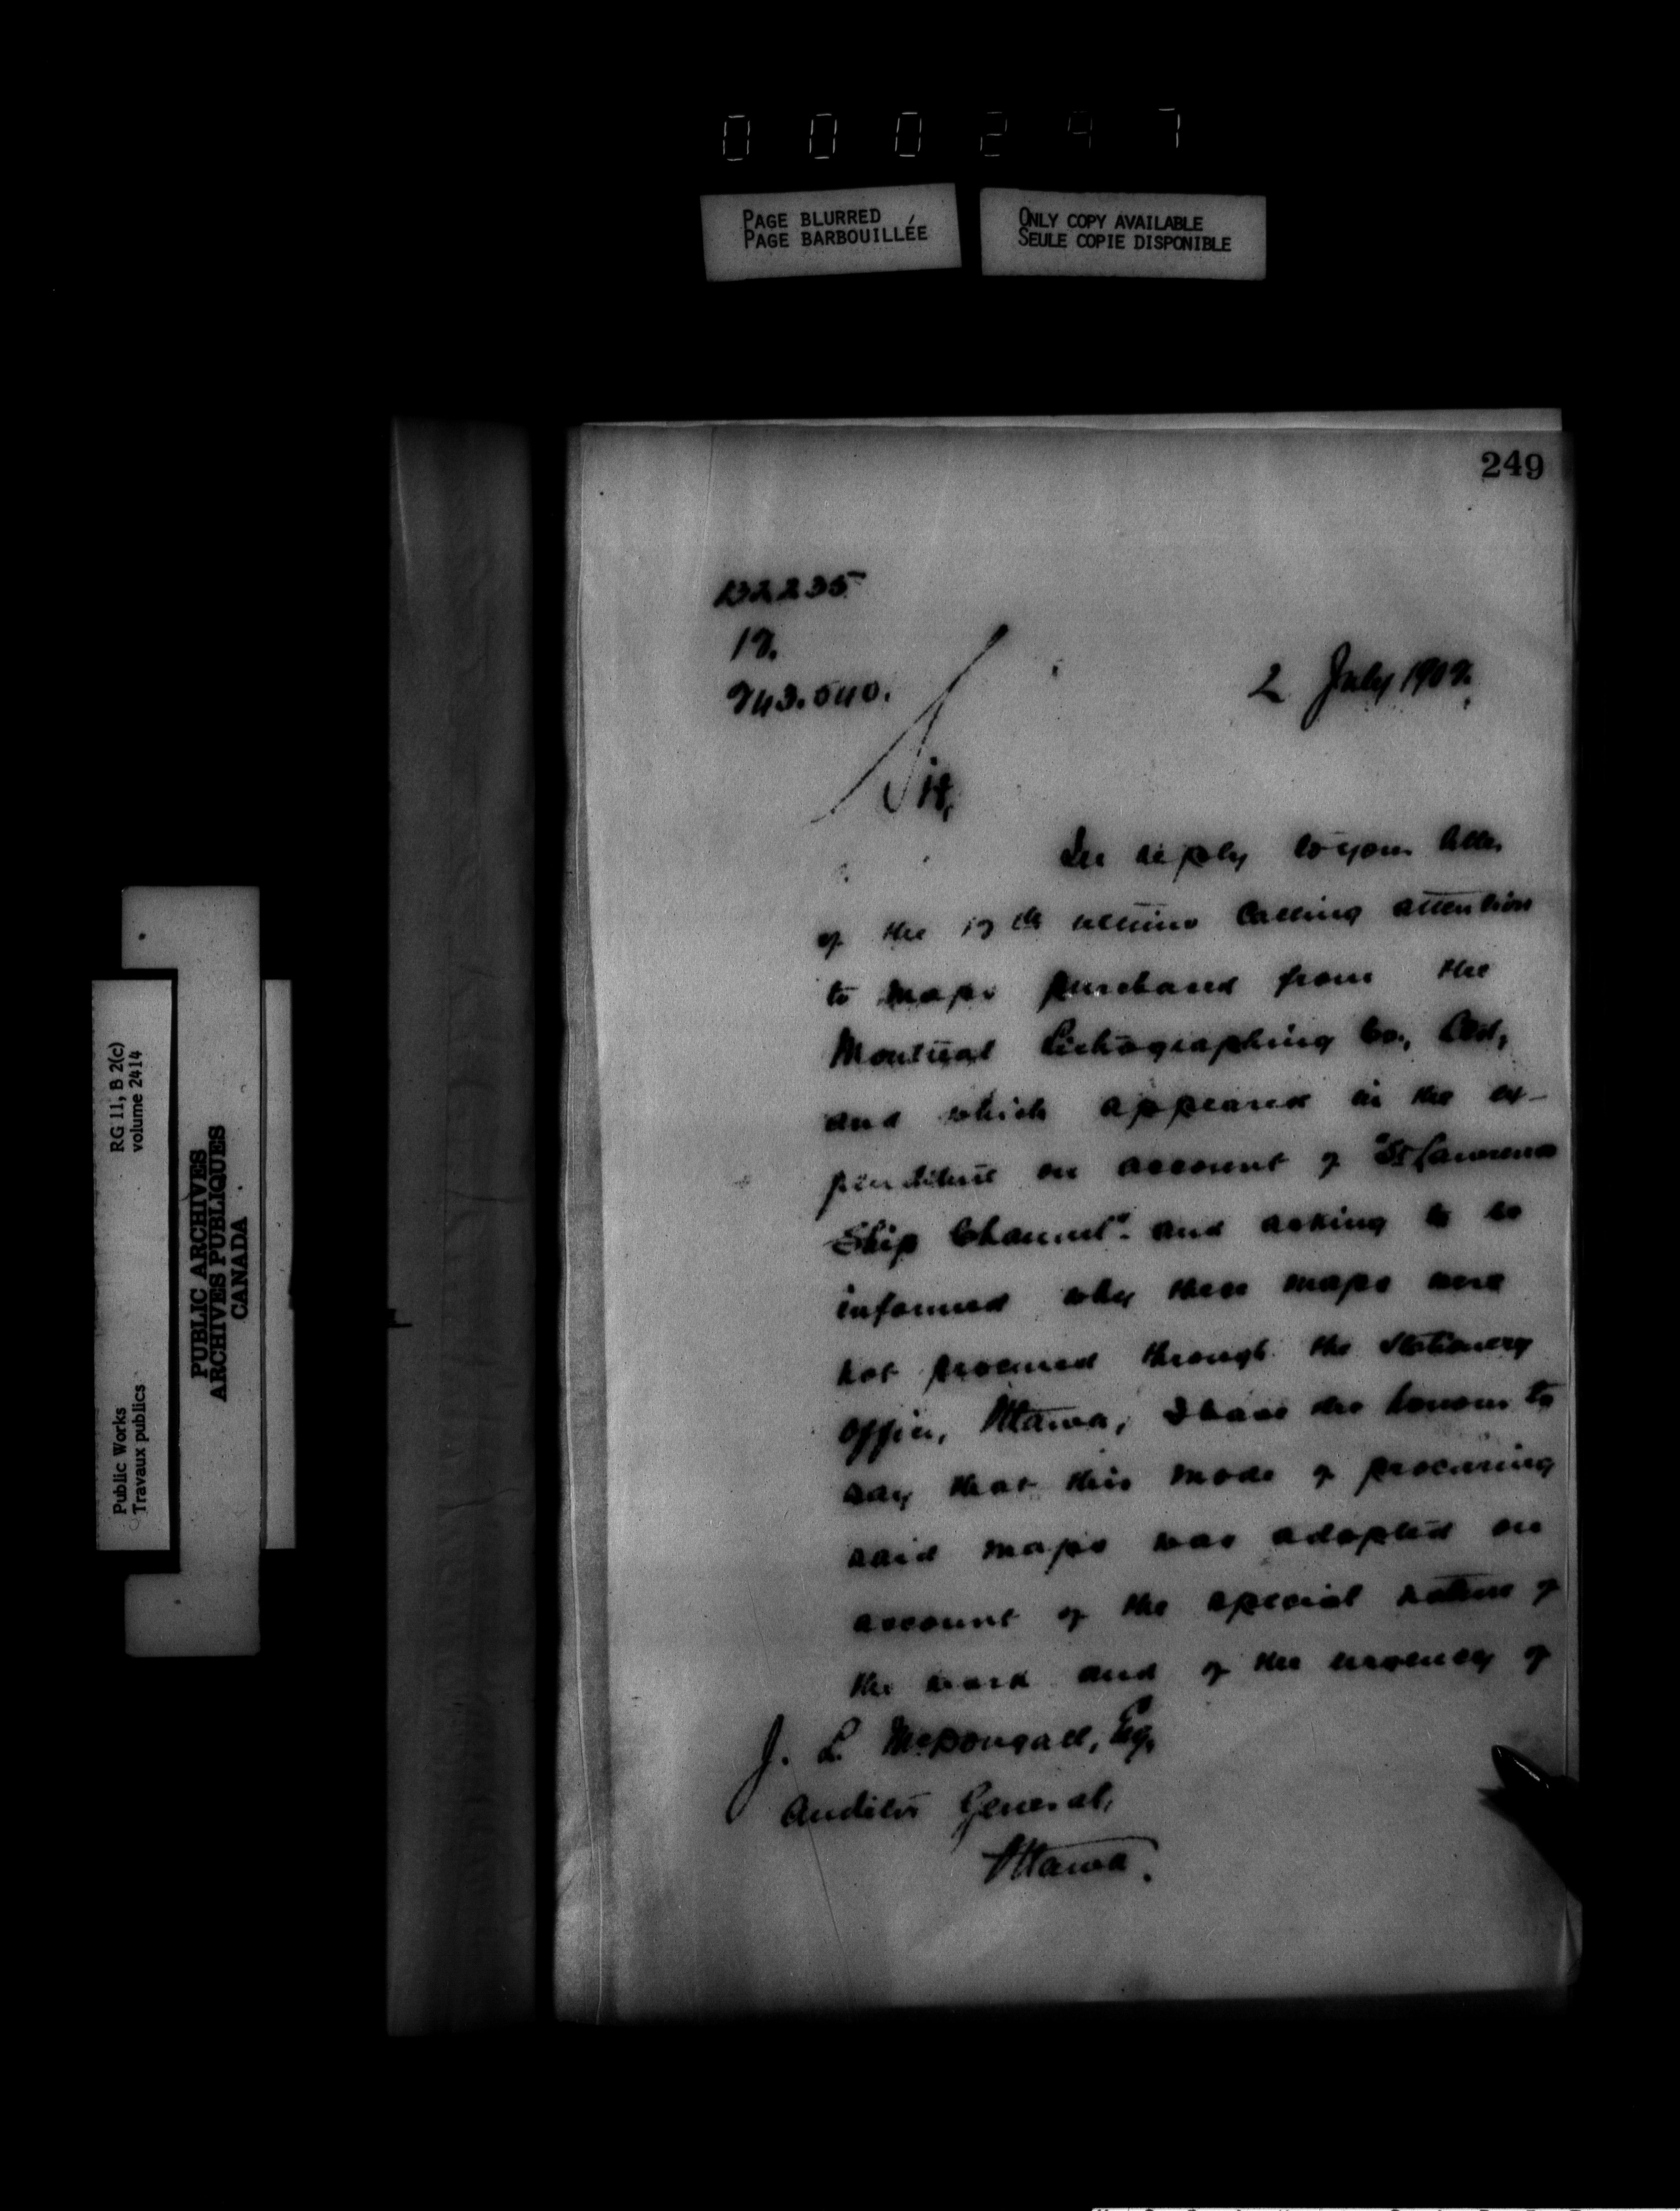 000297
PAGE BLURRED
PAGE BARBOUILLÉE
ONLY COPY AVAILABLE
SEULE COPIE DISPONIBLE
249
2 July 190
Sir,
In reply to your letter
of the 17th ultimo calling attention
to maps purchased from the
Montreal Lithographing Co., Ltd,
and which appeared in the ex-
penditure on account of "St Lawrence
Ship Channel" and asking to be
informed why these maps were
not procured through the Stationery
Office, Ottawa, I have the honour to
say that this mode of procuring
said maps was adopted on
account of the special nature of
the work and of the urgency of
J. L. McDougall, Esq,
Auditor General,
Ottawa.
RG 11, B 2(c)
volume 2414
Public Works
Travaux publics
PUBLIC ARCHIVES
ARCHIVES PUBLIQUES
CANADA